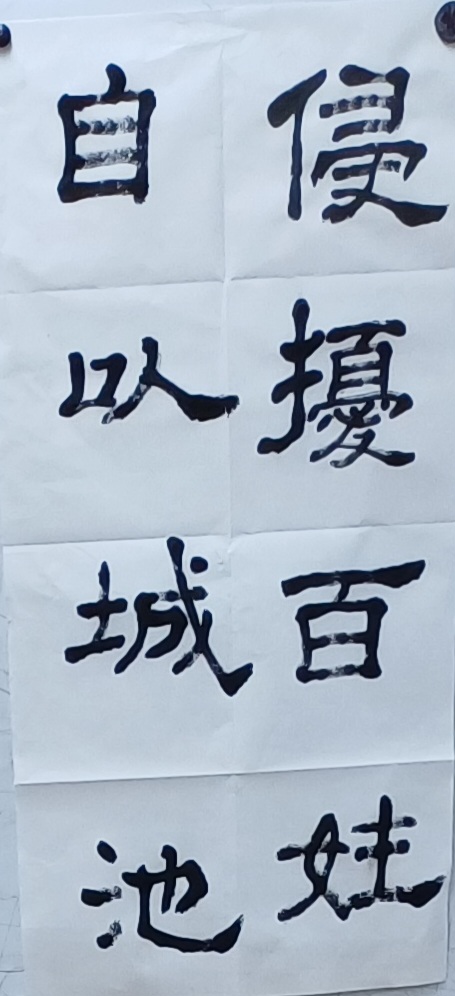 侵擾百姓
自以城池